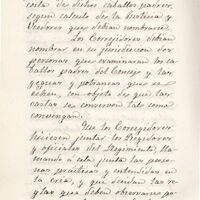 costa de dichos caballos padres,
segun calculo de la Justicia y
Veedores que debian nombrarse.
Los Corregidores debian
nombrar en su jurisdiccion dos
personas que examinaran los ca-
ballos padres del Concejo y las
yeguas y potrancas que se
echen, con objeto de que las
castas se conserven tal como
convengan.
Que los Corregidores
hiciesen juntar los Regidores
y oficiales del Regimiento, lla-
mando a esta junta las perso-
nas prácticas y entendidas en
la cría, y que decidan las re-
glas que deben observarse pa-